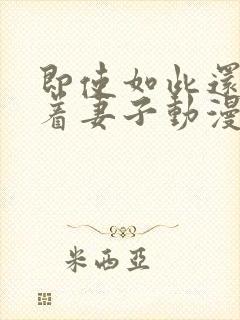 即使如此還
着妻子動漫
米西亞